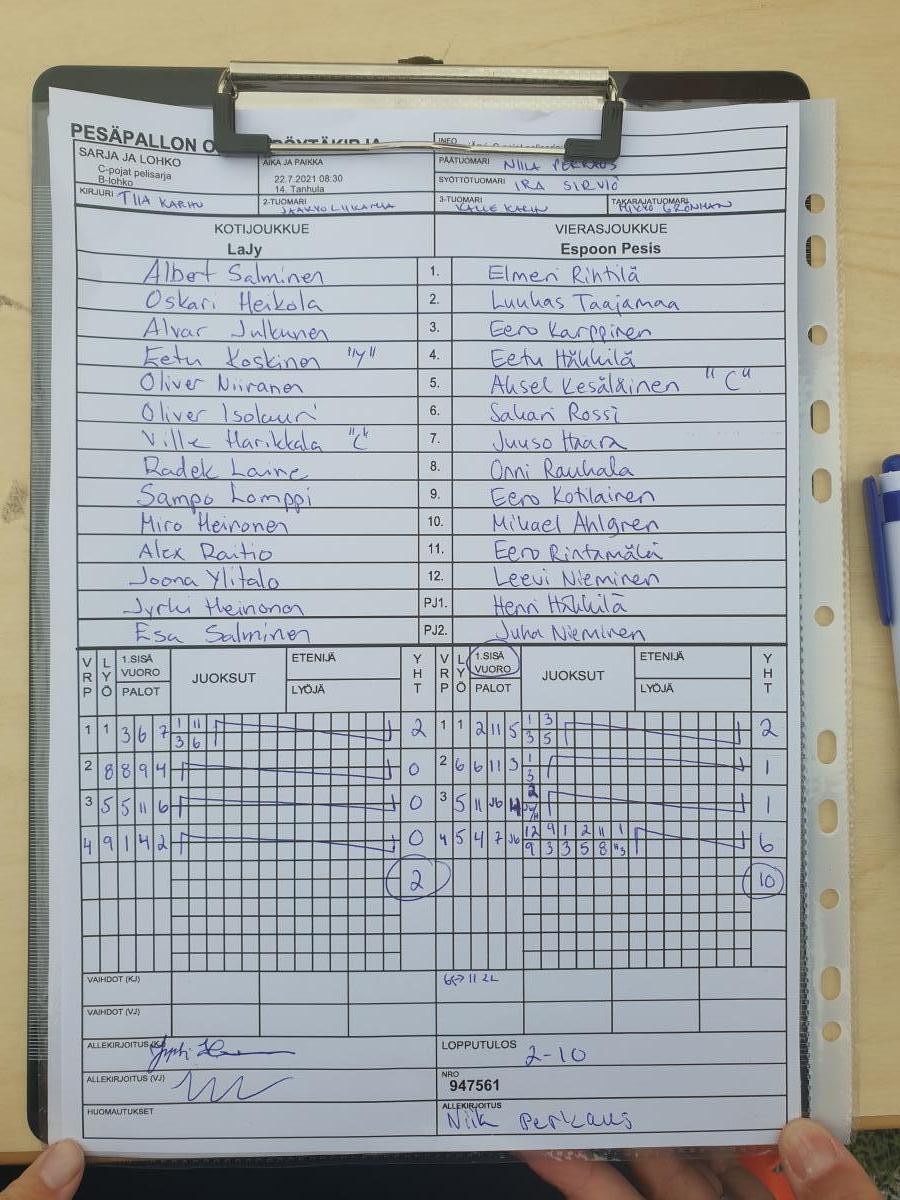 PESÄPALLON
INFO
SARJA JA LOHKO
C-pojat pelisarja
B-lohko
AIKA JA PAIKKA
22.7.2021 08:30
14. Tanhula
PÄÄTUOMARI NIILA PERKAUS
SYÖTTÖTUOMARI IRA SIRVIÖ
KIRJURI TIIA KARHU
2-TUOMARI
3-TUOMARI KALLE KARHU
TAKARAJATUOMARI MIKKO GRÖNMAN
KOTIJOUKKUE VIERASJOUKKUE
LaJy Espoon Pesis
Albert Salminen 1. Elmeri Rintilä
Oskari Heikola 2. Luukas Taajamaa
Alvar Julkunen 3. Eero Karppinen
Eetu Koskinen "V" 4. Eetu Häkkilä
Oliver Niiranen 5. Aksel Kesäläinen "C"
Oliver Isolauri 6. Sakari Rossi
Ville Harikkala "C" 7. Juuso Haara
Radek Laine 8. Onni Rauhala
Sampo Lomppi 9. Eero Kotilainen
Miro Heinonen 10. Mikael Ahlgren
Alex Raitio 11. Eero Rintamäki
Joona Ylitalo 12. Leevi Nieminen
Jyrki Heinonen PJ1. Henri Häkkilä
Esa Salminen PJ2. Juha Nieminen
VRP LYÖ 1.SISÄ VUORO PALOT JUOKSUT ETENIJÄ LYÖJÄ YHT VRP LYÖ 1.SISÄ VUORO PALOT JUOKSUT ETENIJÄ LYÖJÄ YHT
1 1 3 6 7 1 11 2 1 1 2 11 5 1 3 2
3 6 3 5
2 8 8 9 4 0 2 6 6 11 3 1 1
3
3 5 5 11 6 0 3 5 11 2 1
4 9 1 4 2 0 4 5 4 7 12 9 1 2 11 1 6
9 3 3 5 8
2 10
VAIHDOT (KJ)
VAIHDOT (VJ)
ALLEKIRJOITUS (KJ)
LOPPUTULOS 2-10
ALLEKIRJOITUS (VJ)
NRO
947561
HUOMAUTUKSET
ALLEKIRJOITUS
Niila Perkaus